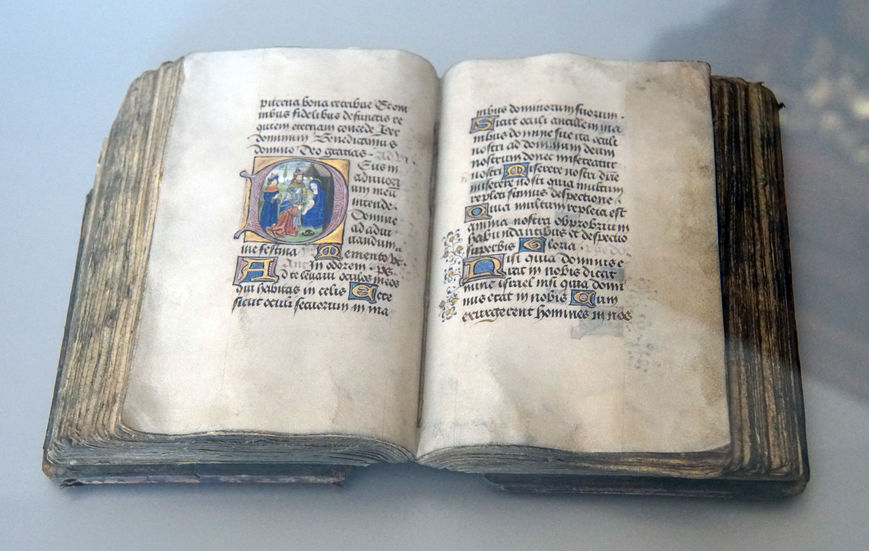 piterna bona retribue Et om
nibus fidelibus defunctis re
quiem eternam concede Per
dominum Benedicamus
domino Deo gratias
Deus in
adiutori
um meū
intende
Domine
ad adiu
uandum
me festina Memento
Ant In odorem ps
Ad te leuaui oculos meos
qui habitas in celis Ecce
sicut oculi seruorum in ma
nibus dominorum suorum
Sicut oculi ancille in ma
nibus domine sue ita oculi
nostri ad dominum deum
nostrum donec misereatur
nostri Miserere nostri dñe
miserere nostri quia multum
repleti sumus despectione
Quia multum repleta est
anima nostra obprobrium
habundantibus et despectio
superbis Gloria
Nisi quia dominus e
rat in nobis dicat
nunc israel nisi quia domi
nus erat in nobis Cum
exurgerent homines in nos